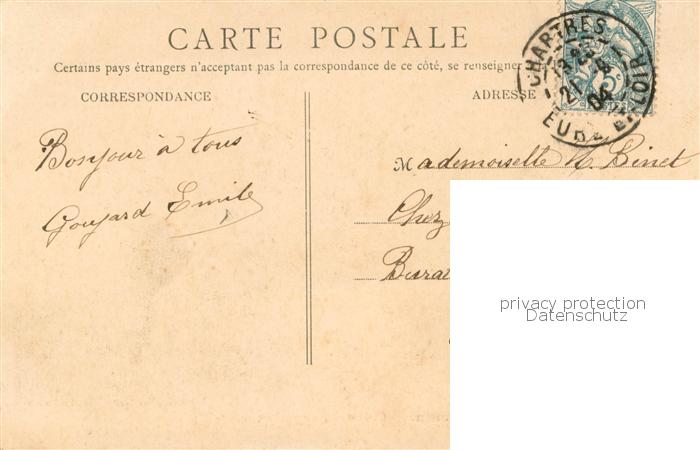 CARTE POSTALE
Certains pays étrangers n'acceptent pas la correspondance de ce côté, se renseigner
CORRESPONDANCE
ADRESSE
CHARTRES
21
04
EURE
LOIR
5c
Bonjour à tous
Goujard Emile
Mademoiselle M. Binet
Chez
privacy protection
Datenschutz